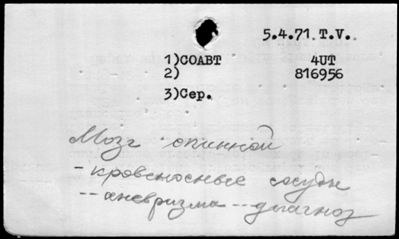 5.4.71 T.V.
1)СОАВТ 4UT
2) 816956
3)Сер.
Мозг спинной
- кровеносные сосуды
-- аневризма -- диагноз